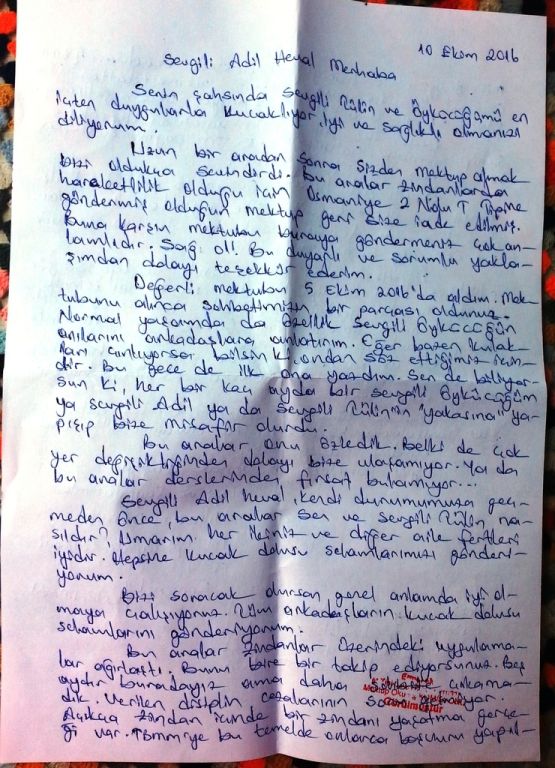 10 Ekim 2016
Sevgili Adil Heval Merhaba
Senin şahsında sevgili Tülin ve Öykücüğümü en
içten duygularla kucaklıyor, iyi ve sağlıklı olmanızı
diliyorum.
Uzun bir aradan sonra sizden mektup almak
bizi oldukça sevindirdi. Bu aralar zindanlarda
haraketlilik olduğu için Osmaniye 2 Nolu T Tipine
göndermiş olduğun mektup geri size iade edilmiş.
Buna karşın mektubu buraya göndermeniz çok an-
lamlıdır. Sağ ol! Bu duyarlı ve sorumlu yakla-
şımdan dolayı teşekkür ederim.
Değerli mektubun 5 Ekim 2016'da aldım. Mek-
tubunu alınca sohbetimizin bir parçası oldunuz.
Normal yaşamımda da özellik sevgili Öykücüğün
anılarını arkadaşlara anlatırım. Eğer bazen kulak-
ları çınlıyorsa bilsin ki, ondan söz ettiğimiz için-
dir. Bu gece de ilk ona yazdım. Sen de biliyor-
sun ki, her bir kaç ayda bir sevgili Öykücüğüm
ya sevgili Adil ya da sevgili Tülin'in "yakasına" ya-
pışıp bize misafir olurdu.
Bu aralar onu özledik. Belki de çok
yer değişikliğinden dolayı bize ulaşamıyor. Ya da
bu aralar derslerinden fırsat bulamıyor...
Sevgili Adil heval, kendi durumumuza geç-
meden önce, bu aralar sen ve sevgili Tülin na-
sıldır? Umarım her ikiniz ve diğer aile fertleri
iyidir. Hepsine kucak dolusu selamlarımızı gönderi-
yorum.
Bizi soracak olursan genel anlamda iyi ol-
maya çalışıyoruz. Tüm arkadaşların kucak dolusu
selamlarını gönderiyorum.
Bu aralar zindanlar üzerindeki uygulama-
lar ağırlaştı. Bunu bire bir takip ediyorsunuz. Beş
aydır buradayız ama daha çıkama-
dık. Verilen disiplin cezalarının sonu
Açıkça zindan içinde bir zindanı yaşatma gerçe-
ği var. TBMM'ye bu temelde onlarca başvuru yapıl-
Görülmüştür